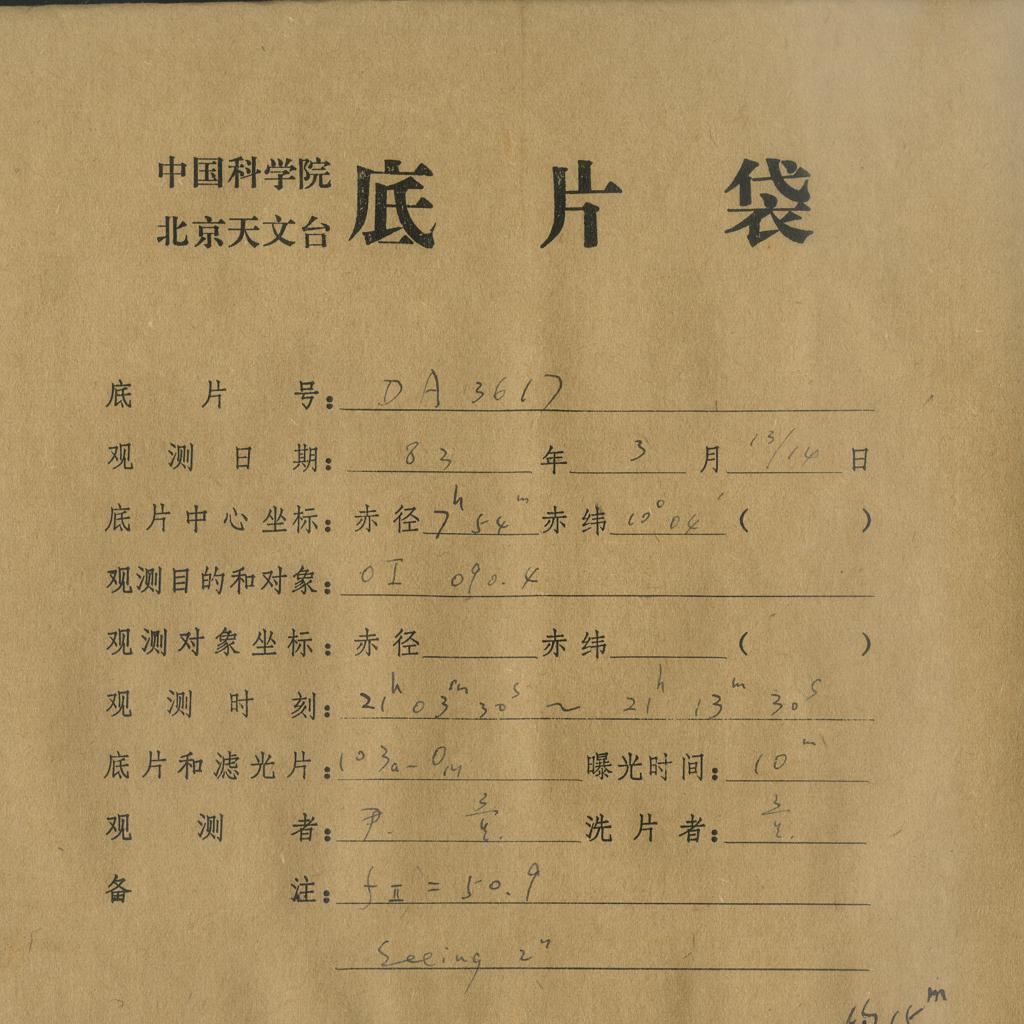 中国科学院
北京天文台
底片袋
底片号：DA 3617
观测日期：83年3月13/14日
底片中心坐标：赤径7ʰ54ᵐ赤纬10°04′（ ）
观测目的和对象：OI 090.4
观测对象坐标：赤径 赤纬 （ ）
观测时刻：21ʰ03ᵐ30ˢ ~ 21ʰ13ᵐ30ˢ
底片和滤光片：103a-O 曝光时间：10ᵐ
观测者：尹. 洗片者：
备注：fⅡ = 50.9
Seeing 2"
约15ᵐ